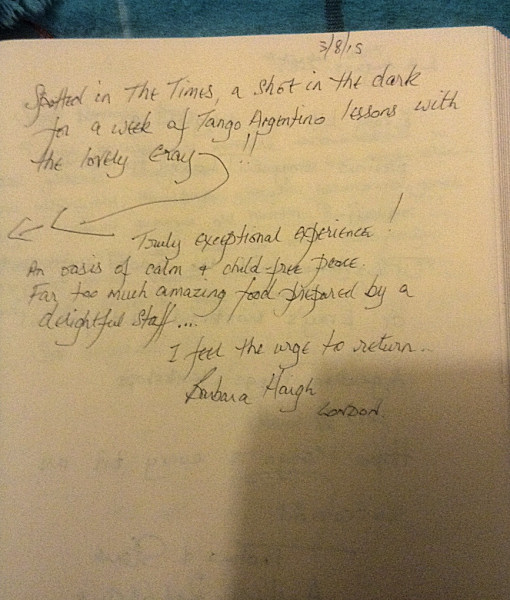 3/8/15
Spotted in The Times, a shot in the dark
for a week of Tango Argentino lessons with
the lovely Eray !!
Truly exceptional experience !
An oasis of calm & child-free peace.
Far too much amazing food prepared by a
delightful staff....
I feel the urge to return..
Barbara Haigh
LONDON.